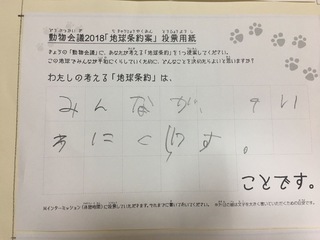 動物会議2018「地球条約案」投票用紙
きょうの「動物会議」に、あなたが考える「地球条約」を1つ提案してください。
この地球でみんなが平和にくらしていくために、どんなことを決めたらよいと思いますか?
わたしの考える「地球条約」は、
みんなが、
にくらす。
ことです。
※インターミッション(休憩時間)に投票していただきます。